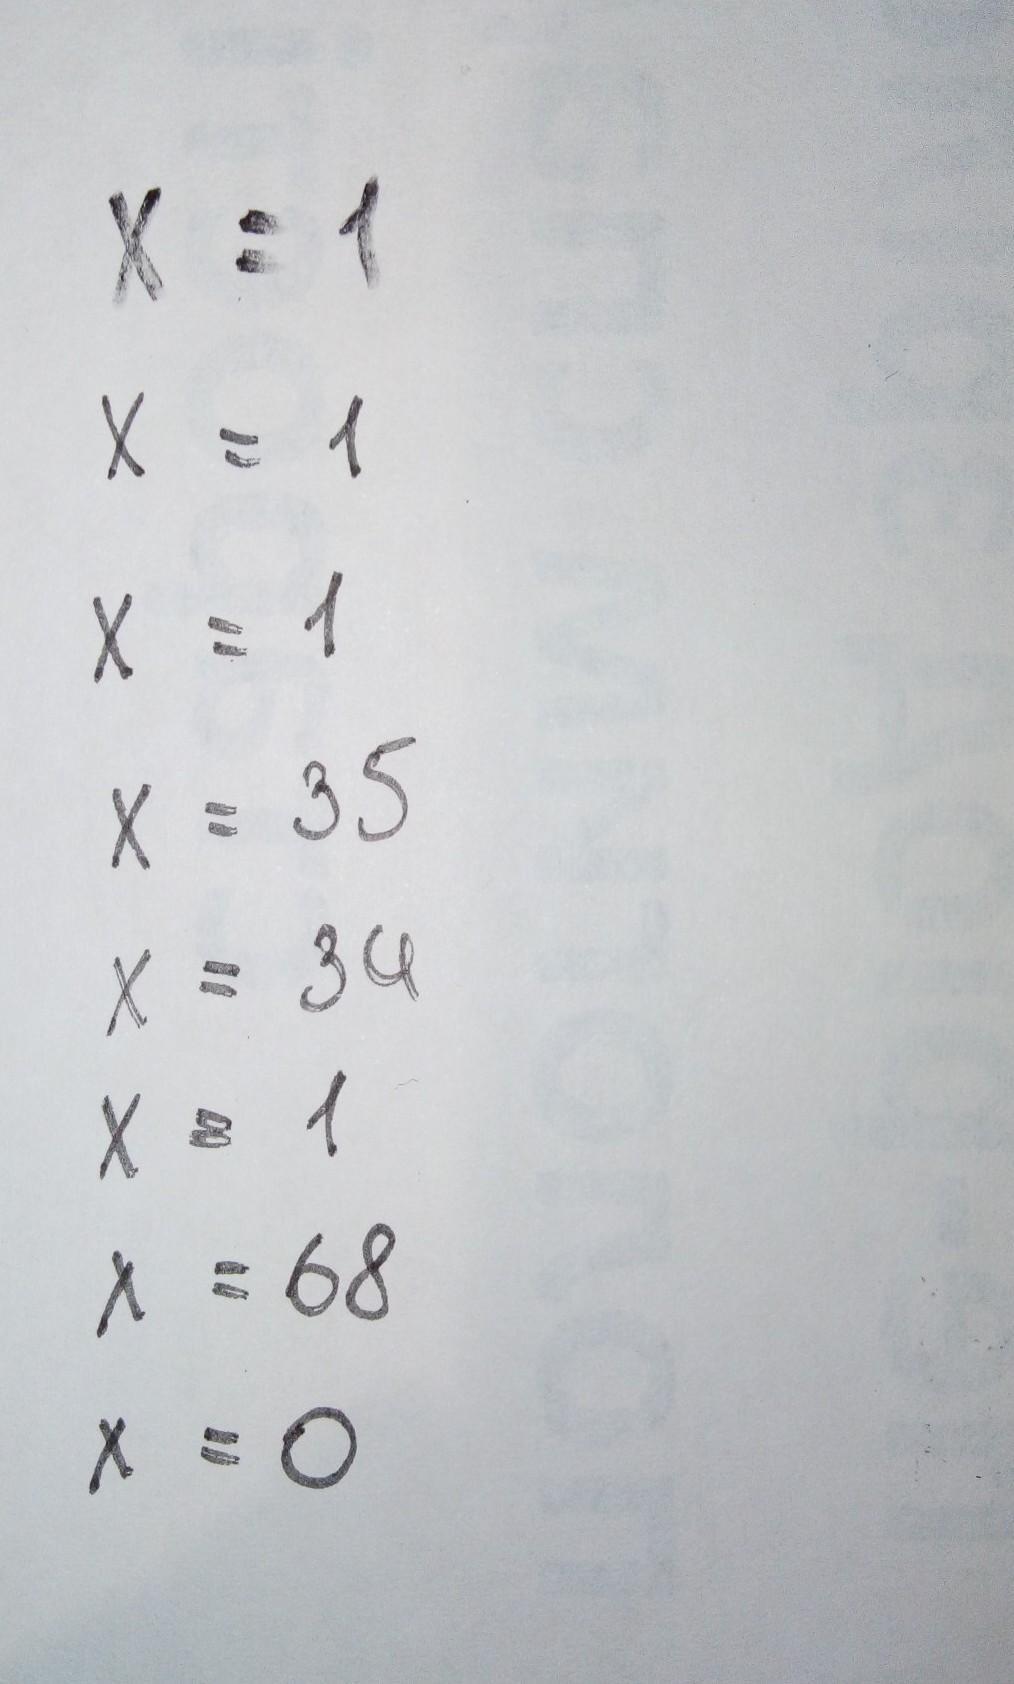 X = 1
X = 1
X = 1
X = 35
X = 34
X = 1
X = 68
X = 0